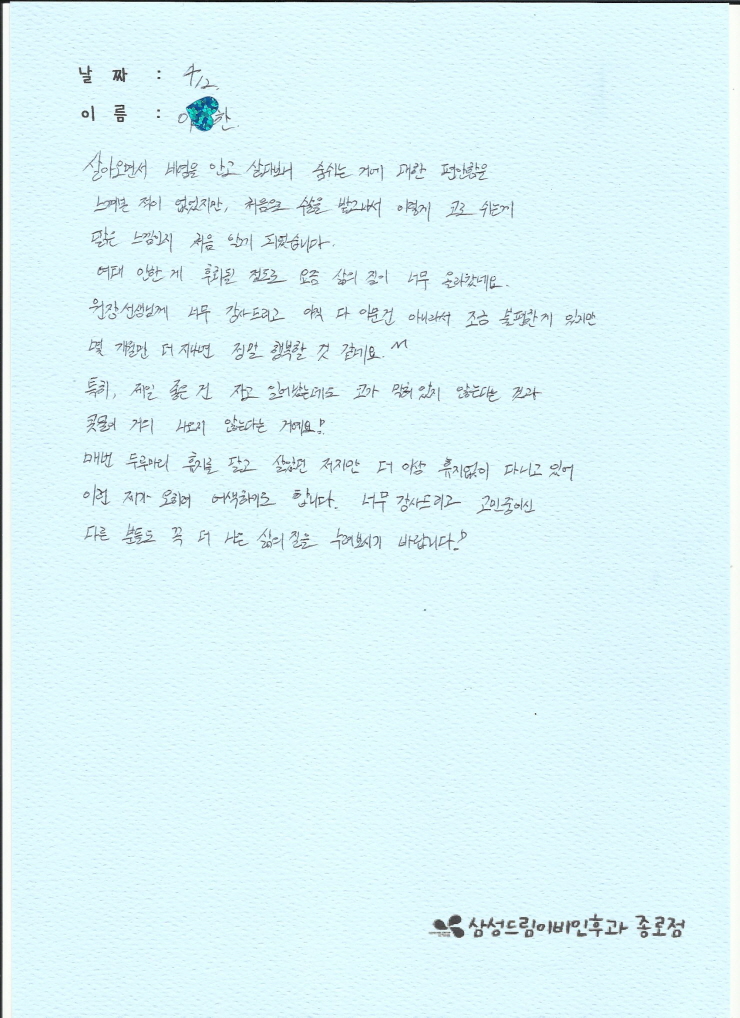 날 짜 : 4/2.
이 름 : 이 한
살아오면서 비염을 안고 살다보니 숨쉬는 거에 대한 편안함을
느껴본 적이 없었지만, 처음으로 수술을 받고나서 이렇게 코로 쉬는게
편한 느낌인지 처음 알게 되었습니다.
여태 안한 게 후회될 정도로 요즘 삶의 질이 너무 올라갔네요.
원장선생님께 너무 감사드리고 아직 다 아문건 아니라서 조금 불편한게 있지만
몇 개월만 더 지나면 정말 행복할 것 같네요. ^^
특히, 제일 좋은 건 자고 일어났는데도 코가 막혀 있지 않는다는 것과
콧물이 거의 나오지 않는다는 거예요!!
매번 두루마리 휴지를 달고 살았던 저지만 더 이상 휴지없이 다니고 있어
이런 제가 오히려 어색하기도 합니다. 너무 감사드리고 고민중이신
다른 분들도 꼭 더 나은 삶의 질을 누려보시기 바랍니다.!!
삼성드림이비인후과 종로점